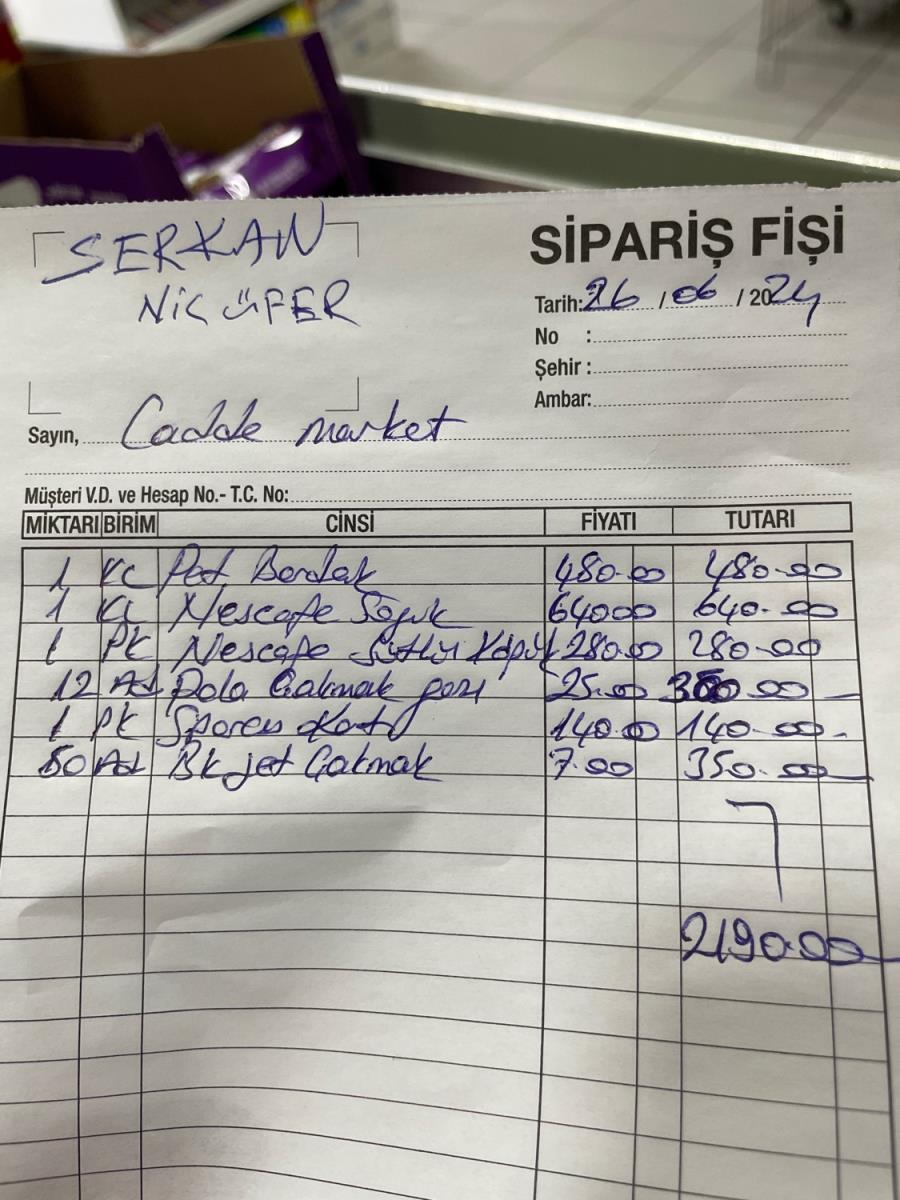 SERKAN
NİLÜFER
SİPARİŞ FİŞİ
Tarih: 26 / 06 / 2024
No :
Şehir :
Ambar:
Sayın, Cadde market
Müşteri V.D. ve Hesap No.- T.C. No:
MİKTARI BİRİM CİNSİ FİYATI TUTARI
1 KL Pet Bardak 480.00 480.00
1 KL Nescafe 64000 640.00
1 PK Nescafe Sütlü Köpük 280.00 280.00
12 Ad Pola Çakmak gazı 25.00 300.00
1 PK 140.00 140.00
50 Ad Bk jet Çakmak 7.00 350.00
2190.00